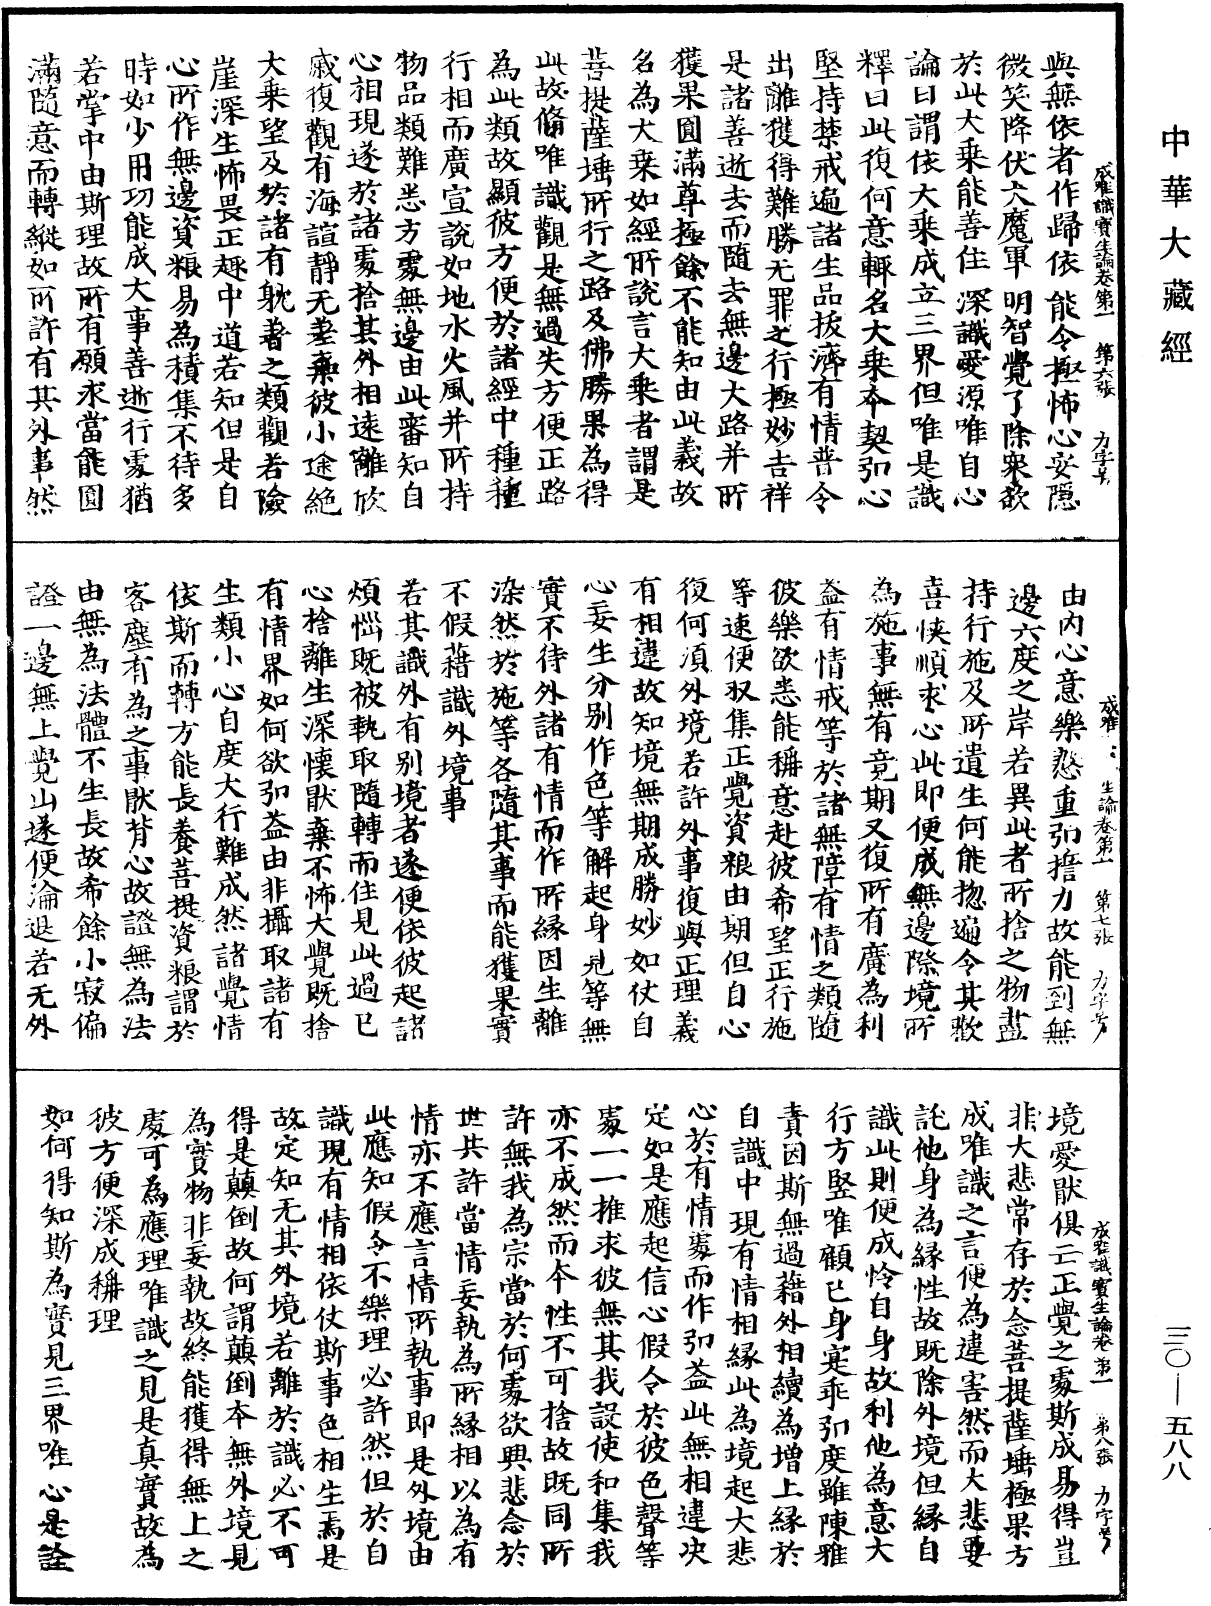 中華大藏經
三〇—五八八
成唯識寶生論卷第一　第六張　力字号
與無依者作歸依　能令極怖心安隱
微笑降伏大魔軍　明智覺了除衆欲
於此大乘能善住　深識愛源唯自心
論曰謂依大乘成立三界但唯是識
釋曰此復何意輒名大乘本契弘心
堅持禁戒遍諸生品拔濟有情普令
出離獲得難勝无罪之行極妙吉祥
是諸善逝去而隨去無邊大路并所
獲果圓滿尊極餘不能知由此義故
名為大乘如經所說言大乘者謂是
菩提薩埵所行之路及佛勝果為得
此故脩唯識觀是無過失方便正路
為此類故顯彼方便於諸經中種種
行相而廣宣說如地水火風并所持
物品類難悉方處無邊由此審知自
心相現遂於諸處捨其外相遠離欣
慼復觀有海諠靜无差棄彼小途絶
大乘望及於諸有躭著之類觀若險
崖深生怖畏正趣中道若知但是自
心所作無邊資粮易為積集不待多
時如少用功能成大事善逝行處猶
若掌中由斯理故所有願求當能圓
滿隨意而轉縱如所許有其外事然
成唯　生論卷第一　第七張　力字号
由內心意樂慇重弘擔力故能到無
邊六度之岸若異此者所捨之物盡
持行施及所遺生何能惣遍令其歡
喜愜順求心此即便成無邊際境所
為施事無有竟期又復所有廣為利
益有情戒等於諸無障有情之類隨
彼樂欲悉能稱意赴彼希望正行施
等速便収集正覺資粮由期但自心
復何須外境若許外事復與正理義
有相違故知境無期成勝妙如仗自
心妄生分別作色等解起身見等無
實不待外諸有情而作所緣因生離
染然於施等各隨其事而能獲果實
不假藉識外境事
若其識外有別境者遂便依彼起諸
煩惱既被執取隨轉而住見此過已
心捨離生深懷厭棄不怖大覺既捨
有情界如何欲弘益由非攝取諸有
生類小心自度大行難成然諸覺情
依斯而轉方能長養菩提資粮謂於
客塵有為之事厭背心故證無為法
由無為法體不生長故希餘小寂偏
證一邊無上覺山遂便淪退若无外
成唯識寶生論卷第一　第八張　力字号
境愛厭俱亡正覺之處斯成易得豈
非大悲常存於念菩提薩埵極果方
成唯識之言便為違害然而大悲要
託他身為緣性故既除外境但緣自
識此則便成怜自身故利他為意大
行方堅唯顧已身寔乖弘度雖陳雅
責因斯無過藉外相續為增上緣於
自識中現有情相緣此為境起大悲
心於有情處而作弘益此無相違決
定如是應起信心假令於彼色聲等
處一一推求彼無其我設使和集我
亦不成然而本性不可捨故既同所
許無我為宗當於何處欲興悲念於
世共許當情妄執為所緣相以為有
情亦不應言情所執事即是外境由
此應知假令不樂理必許然但於自
識現有情相依仗斯事色相生焉是
故定知无其外境若離於識必不可
得是顛倒故何謂顛倒本無外境見
為實物非妄執故終能獲得無上之
處可為應理唯識之見是真實故為
彼方便深成稱理
如何得知斯為實見三界唯心是詮